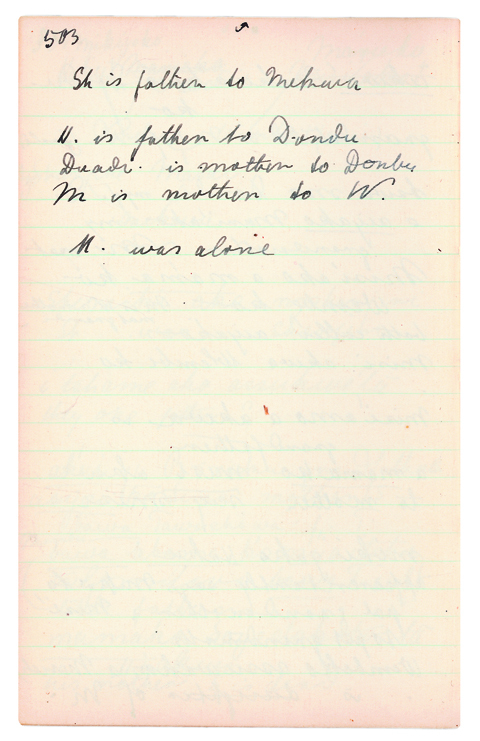 503
Sh is father to Mekura
N. is father to Dondu
Duadi. is mother to Donbu
M is mother to W.
M. was alone